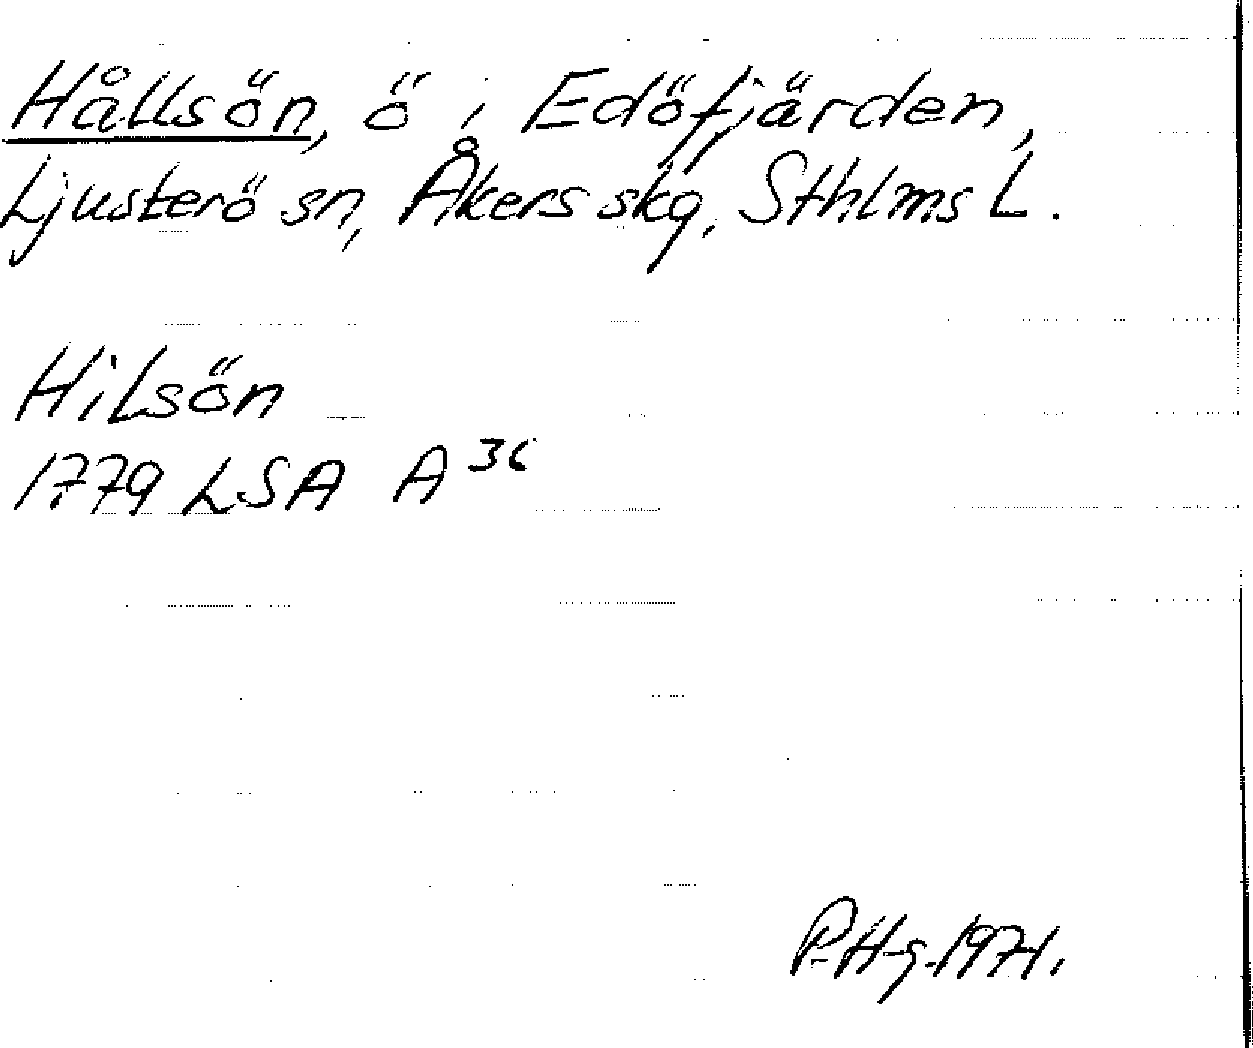 Hållsön, ö i Edöfjärden,
Ljusterö sn, Åkers skg, Sthlms L.
Hilsön
1779 LSA A 36
P. H-g. 1971.